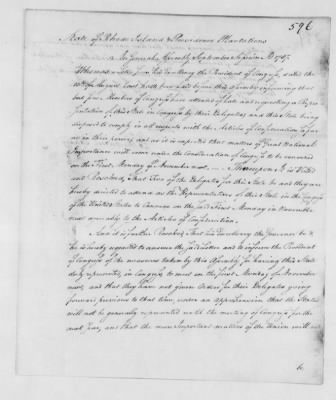 596
State of Rhode Island & Providence Plantations
In General Assembly September Session AD 1787.
Whereas a Letter from his Excellency the President of Congress, dated the
of August last hath been laid before this Assembly informing that
but few States of Congress have attended of late and requesting a Repre-
sentation of this State in Congress by their Delegates and this State being
disposed to comply in all respects with the Articles of Confederation as far
as in their power, and as it is expected that matters of Great National
Importance will come under the Consideration of Congress to be convened
on the First Monday of November next, Thereupon It is Voted
and Resolved, That two of the Delegates for this State be and they are
hereby desired to attend as the Representatives of this State in the Congress
of the United States to Convene on the said First Monday in November
next agreeably to the Articles of Confederation.
And it is further Resolved that his Excellency the Governor be &
he is hereby requested to answer the said Letter and to inform the President
of Congress of the measures taken by this Assembly for having this State
duly represented, in Congress to meet on the first Monday of November
next, and that they have not given Orders for their Delegates going
forward, previous to that time, under an apprehension that the States
will not be generally represented until the meeting of Congress for the
next year, and that the more Important matters of the Union will not
be